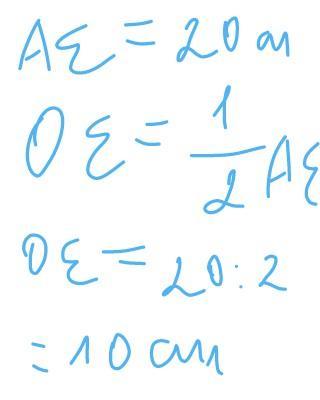 AE = 20 cm
OE = 1/2 AE
OE = 20 : 2
= 10 cm